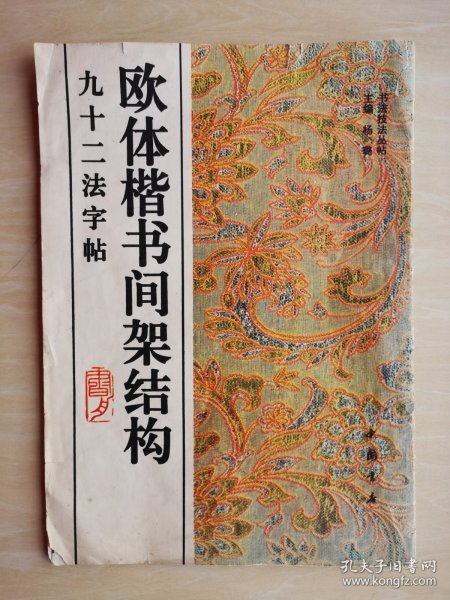 欧体楷书间架结构
九十二法字帖
书法技法丛帖
主编 杨璐
中国书店
孔夫子旧书网
www.kongfz.com